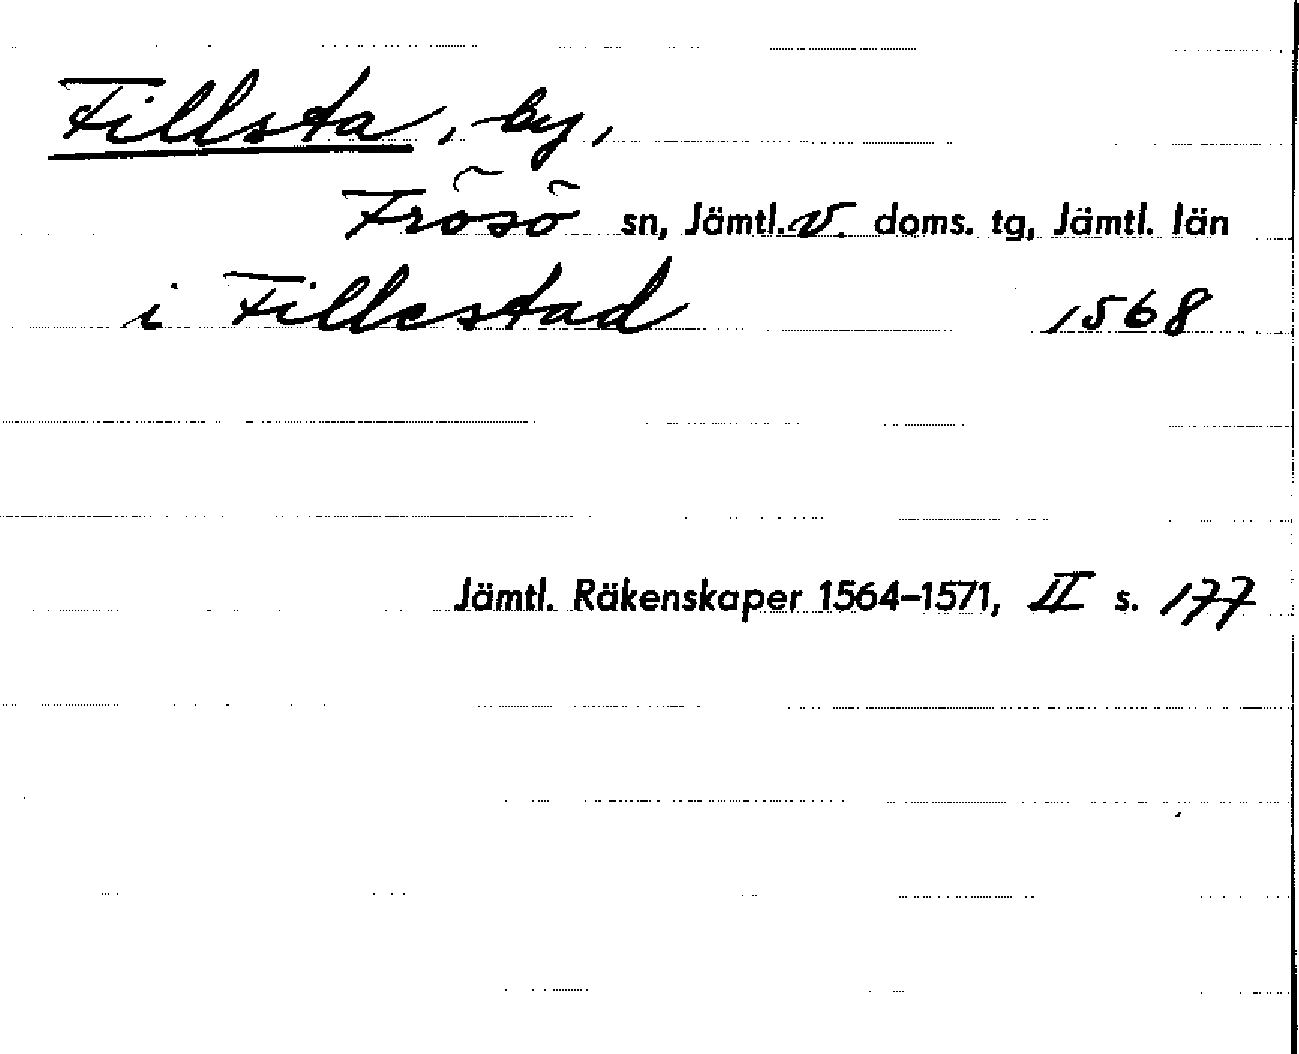 Fillsta, by,
Frösö sn, Jämtl. V. doms. tg, Jämtl. län
i Fillestad 1568
Jämtl. Räkenskaper 1564–1571, II s. 177